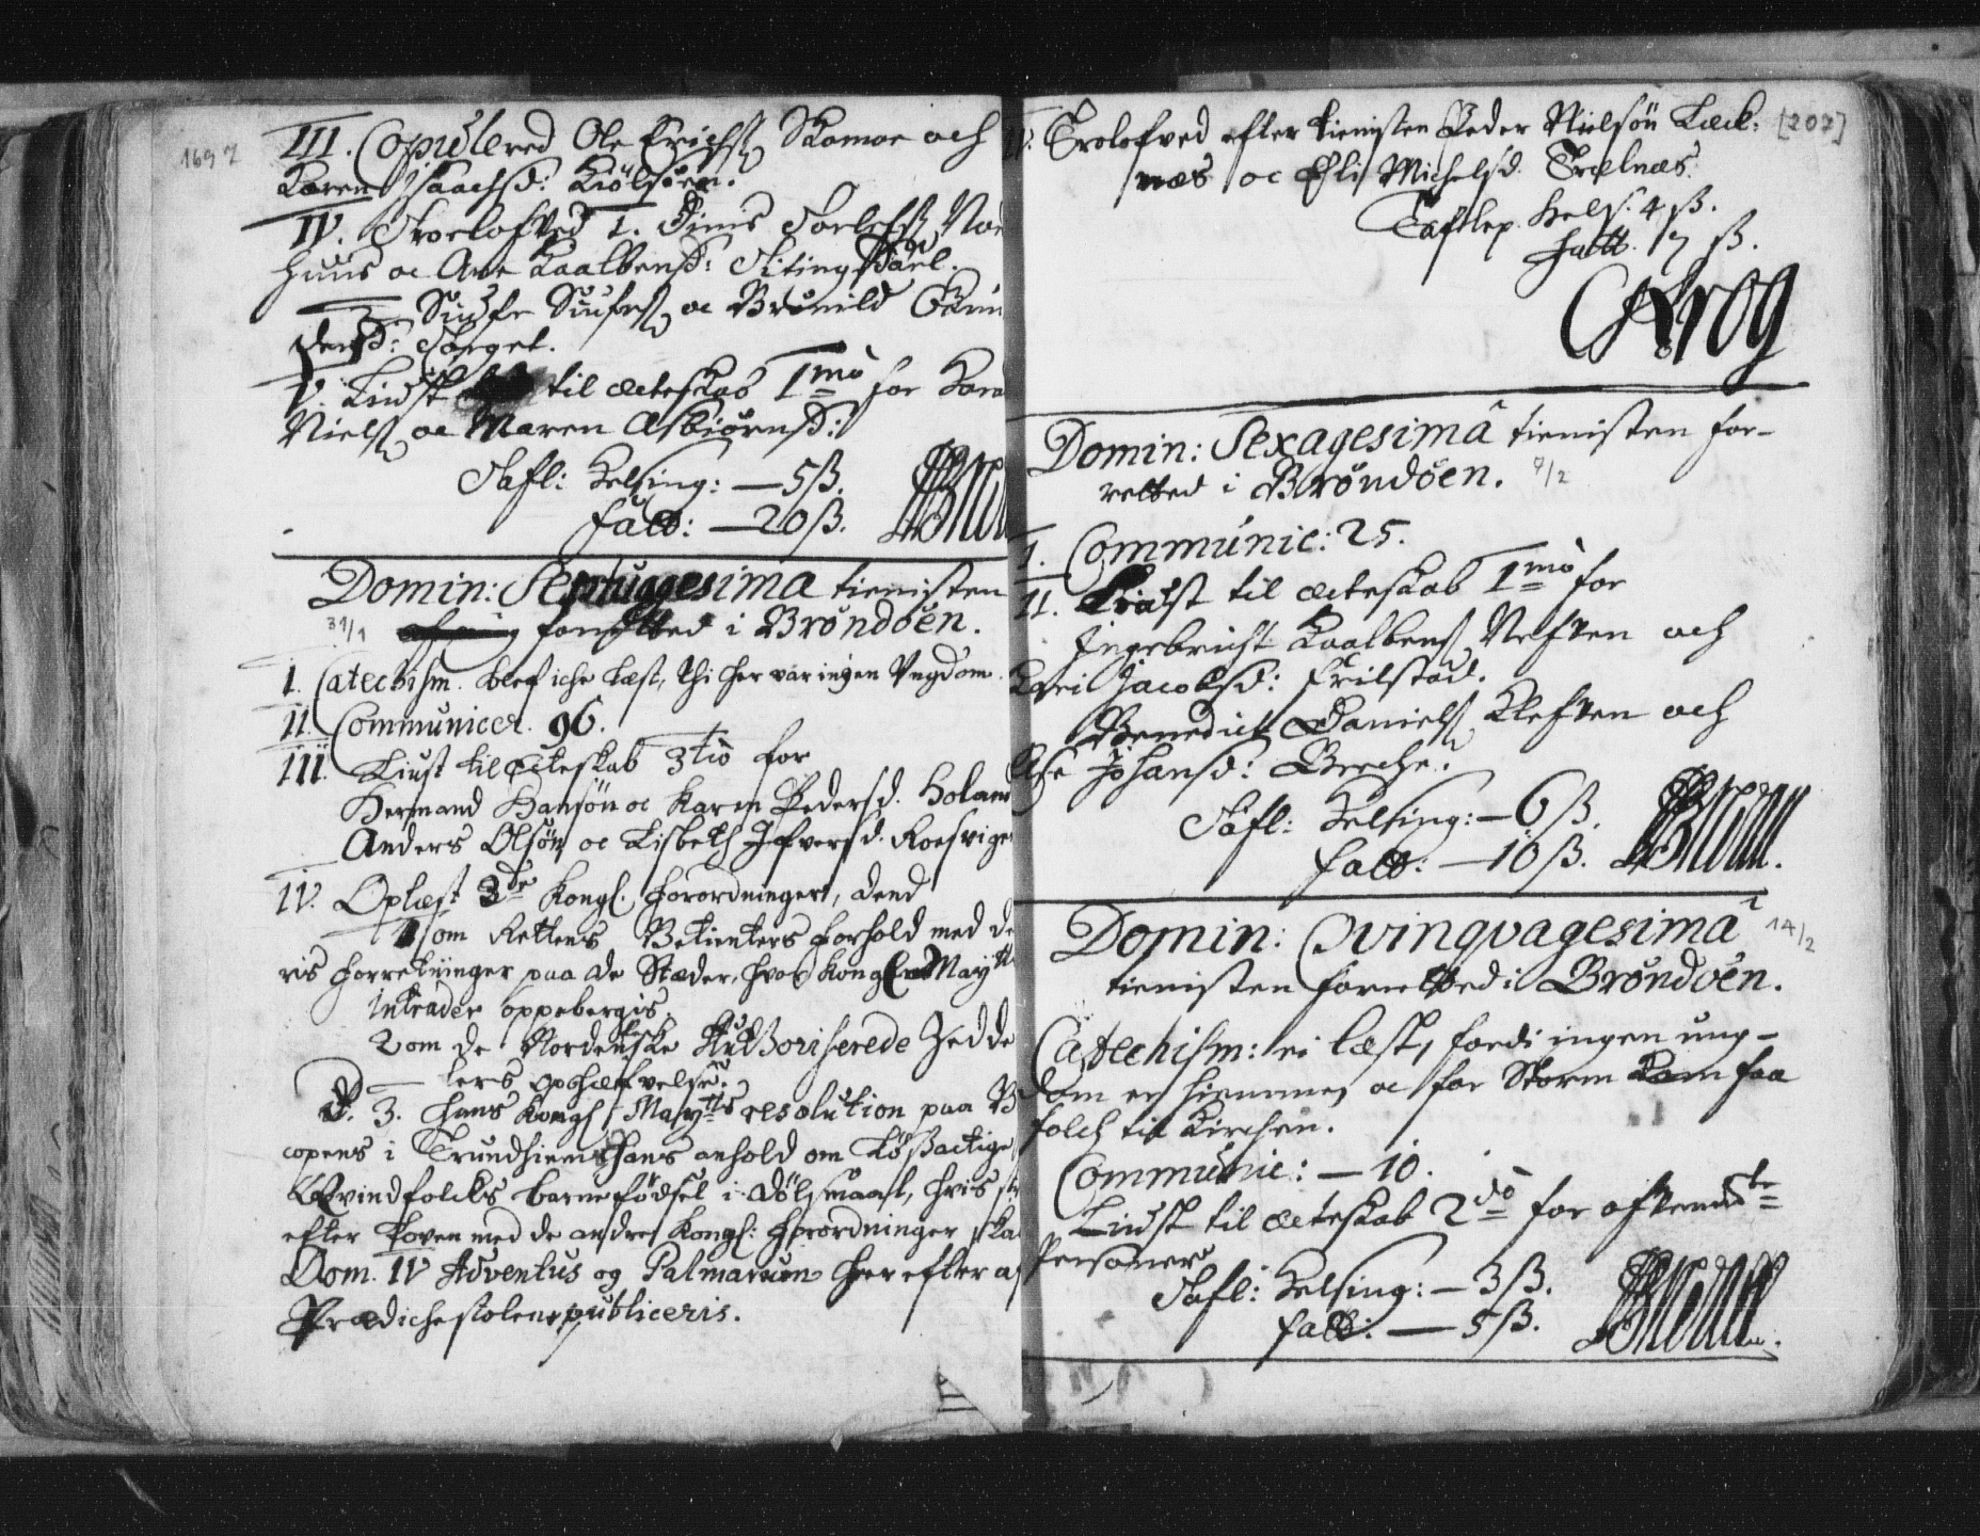 1697
III. Copulered Ole Erichs. Skomoe och
Karen Isaachsd: Kiölsöen.
IV. Troelofved 1. Dinis
huus oc Ane Kaalbensd:
2. Siufr Siufrs. oc Brønild
dersd: Torget.
V. Liust til ecteskab 1mo for
Niels. oc Maren Asbiørnsd:
Tafl: Helsing: — 5 ß.
fatt: — 20 ß.
Domin: Septuagesima tienisten
31/1 forretted i Brøndöen.
I. Catechism. blef iche læst, thi her var ingen Vngdom.
II. Communicer. 96.
III. Liust til Ecteskab 3tio for
Hermand Hansön oc Karen Pedersd.
Anders Olsön oc Lisbeth Ifversd.
IV. Oplæst 3de Kongl. Forordninger, dend
1 om Rettens Betienters forhold med
ris forretninger paa de Stæder, hvor Kongl Maytts
Intrader oppebergis.
2 om de Nordenske Authoriserede Zedde
lers ophæfvelse.
D. 3. Hans Kongl Maytts resolution paa B
copens i Trundhiem hans anhold om Løßactige
Qvindfolcks barnefödsel i dölsmaal, hvis
efter Loven med de andre Kongl: Forordninger ska
Dom. IV Adventus og Palmarum her efter af
Prædichestolen publiceris.
IV. Trolofved efter tienisten Peder Nielsön Leck: [207]
næs oc Eli Michelsd. Trælnæs.
Taflep. Hels. 4 ß.
fatt. 7 ß.
CKrog
Domin: Sexagesimâ tienisten for-
retted i Brøndöen. 7/2
I. Communic: 25.
II. Liust til ecteskab 1mo for
Ingebricht Kaalbens. Neften och
Kari Jacobsd: Tilstad.
Benedict Daniels. Kleften och
Ase Johansd: Breche.
Tafl: Helsing: — 6 ß.
fatt: — 10 ß.
Domin: Qvinqvagesimâ 14/2
tienisten forretted i Brøndöen.
Catechism: ei læst, fordi ingen ung-
dom er hiemme, oc for Storm kom faa
folch til Kirchen.
Communic: — 10.
Liust til ecteskab 2do for
Personer
Tafl: Helsing: — 3 ß.
fatt: — 5 ß.